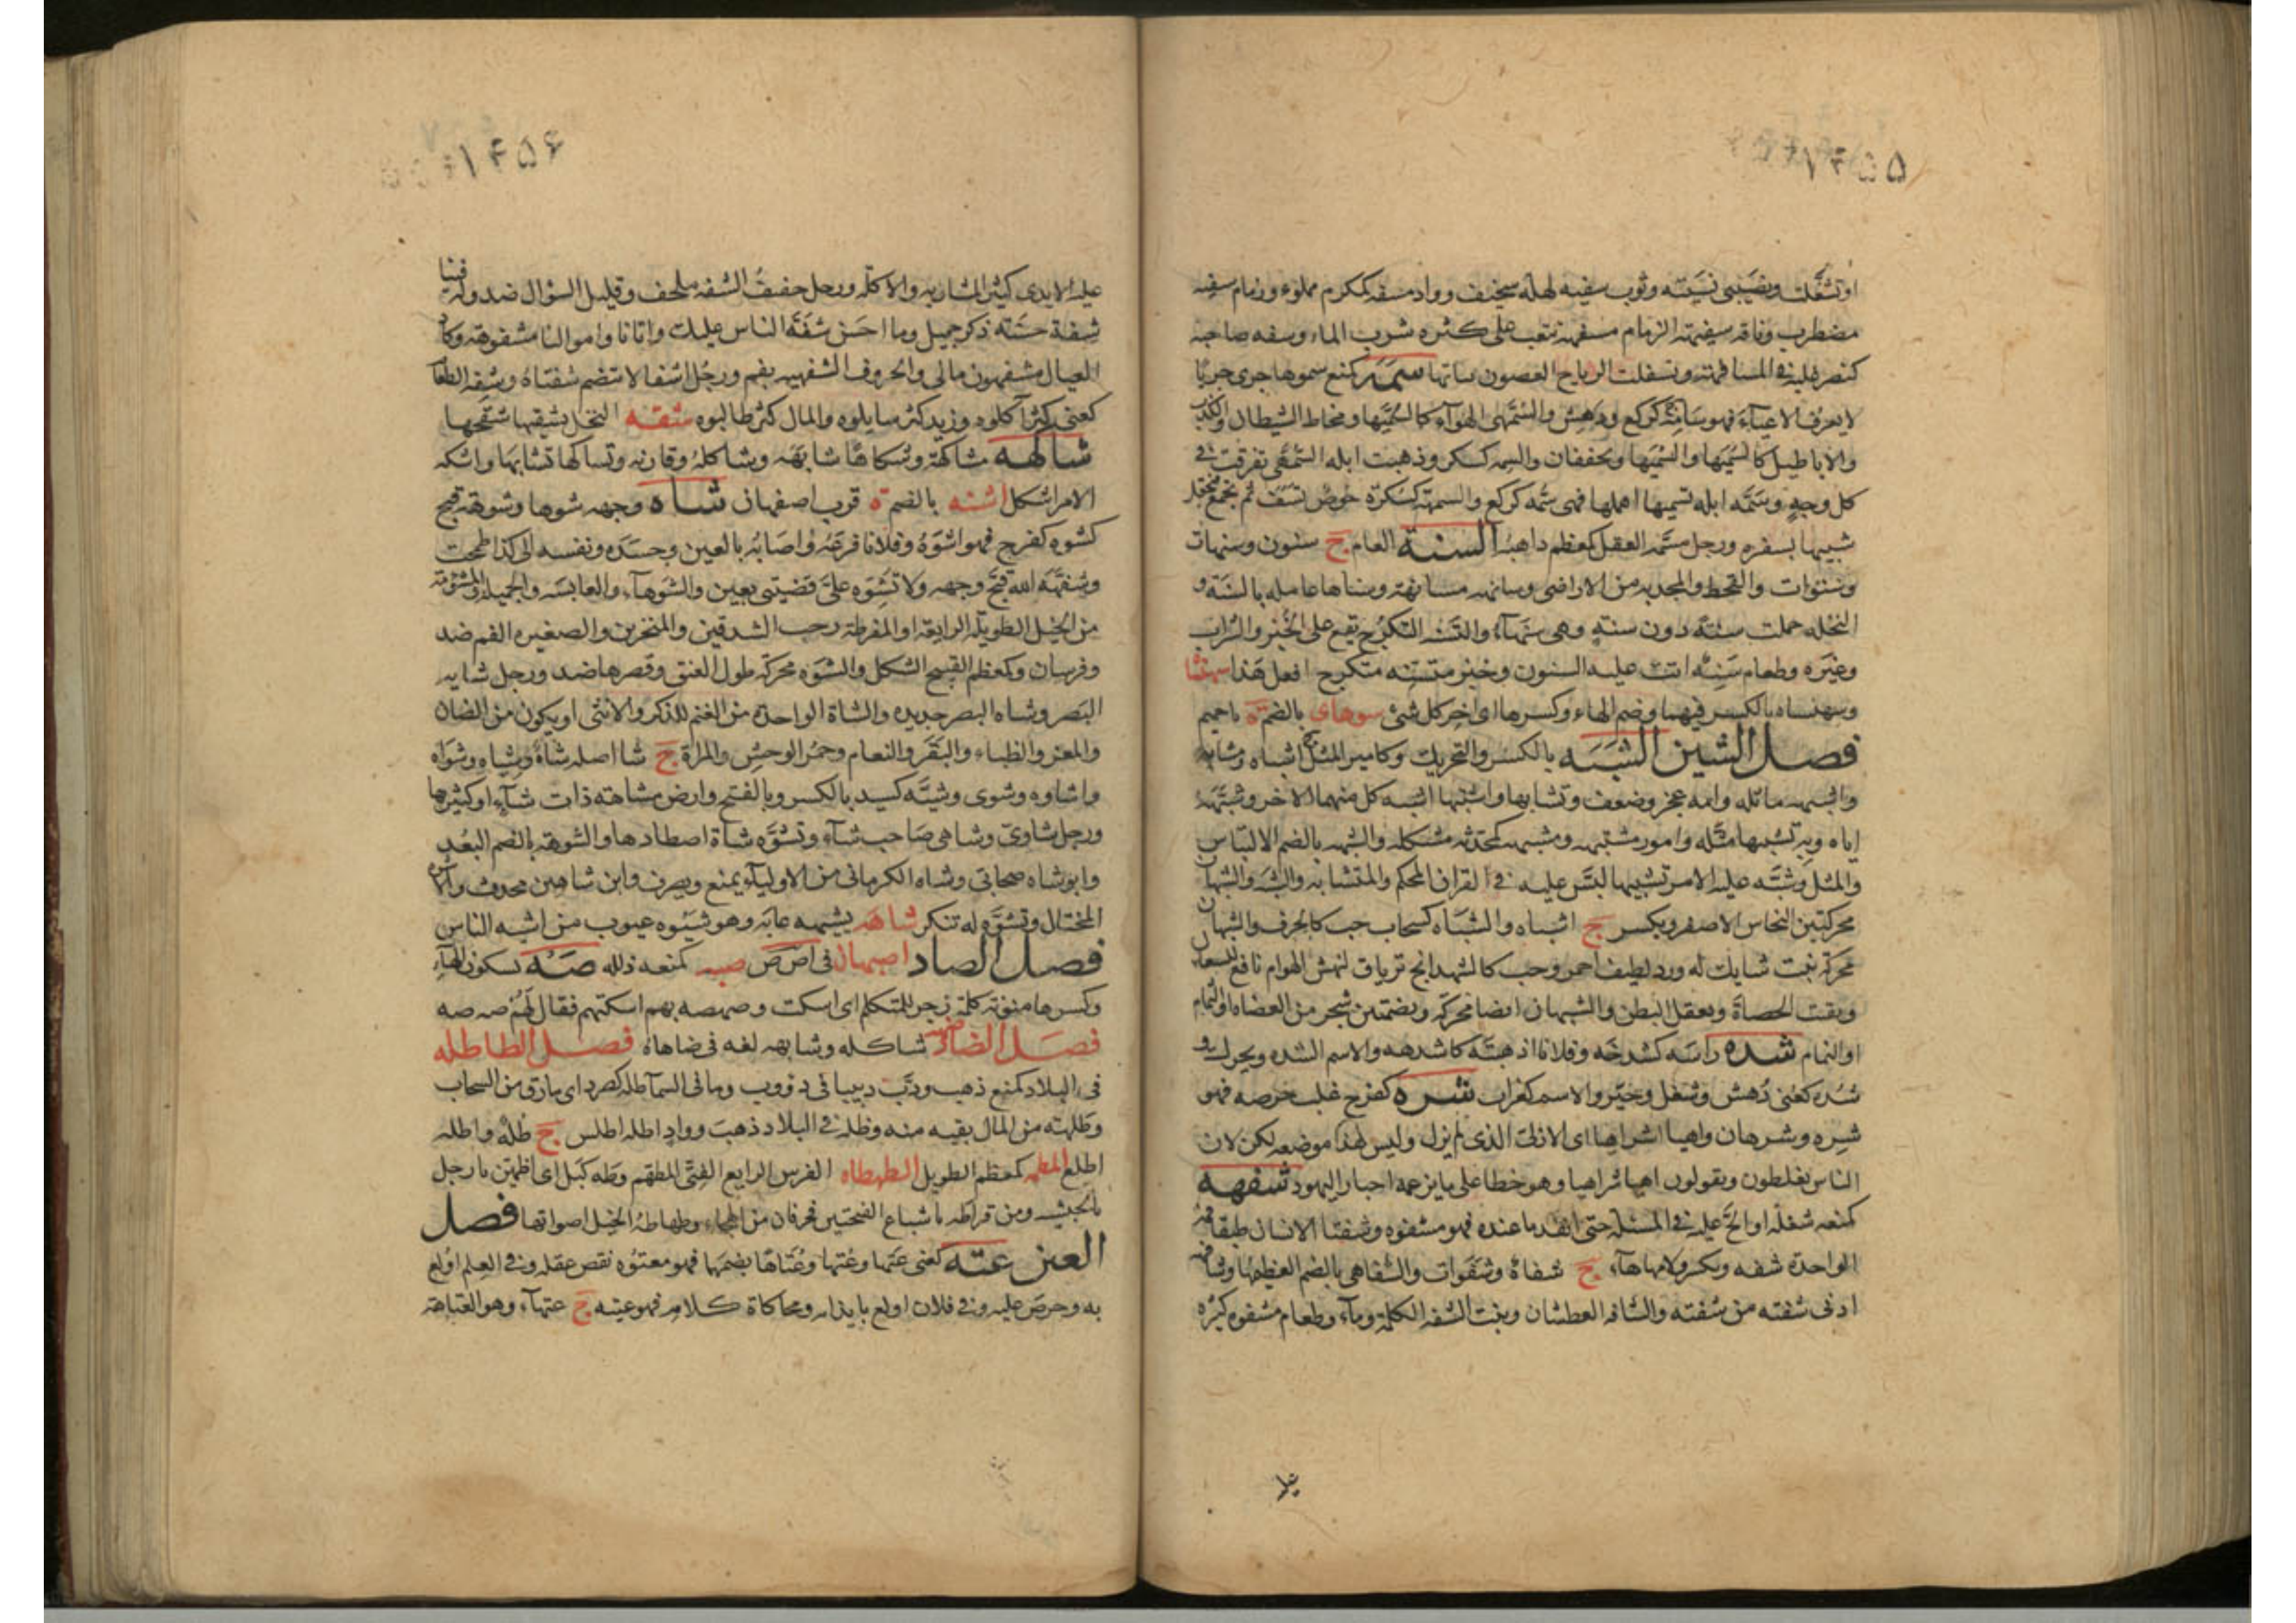 ۱۴۵۵
او تشغلت ونصيبى نسيته وثوب سفيه لهله سخيف وواد مسفه كمكرم مملوء وزمام سفيه
مضطرب وناقه سفيهة الزمام مسفهة تتعب على كثره شرب الماء وسفه صاحبه
كنصر غلبه فى المسافهة وتسفهت الرياح الغصون مالتها سمه كمنع سموها جرى جريا
لا يعرف الاعياء فهو سامه كركع ودهش والسمهى الهواء كالسميها ومخاط الشيطان والكذب
والاباطيل كالسميها والسميها ويخففان والسمه كسكر وذهبت ابله السمهى تفرقت فى
كل وجه وسمه ابله تسميها اهملها فهى سمه كركع والسمهة كسكرة خوص تسف ثم يجمع فيجعل
شبيها بسفره ورجل مسمه العقل كمعظم ذاهبه السنة العام ج سنون وسنهات
وسنوات والقحط والمجدبه من الاراضى وسانهه مسانهة وسناها عامله بالسنة و
النخله حملت سنة دون سنة وهى سنهاء والتسنه التكرج يقع على الخبز والشراب
وغيره وطعام سنه اتت عليه السنون وخبز متسنه متكرج افعل هذا سهنساه
وسهنساه بالكسر فيهما وضم الهاء وكسرها اى اخر كل شئ سوهاى بالضم ة باخميم
فصل الشين الشبه بالكسر والتحريك وكامير المثل ج اشباه وشابهه
واشبهه ماثله وامه عجز وضعف وتشابها واشتبها اشبه كل منهما الاخر وشبهته
اياه وبه تشبيها مثله وامور مشتبهه ومشبهه كمحدثه مشكله والشبهه بالضم الالتباس
والمثل وشبه عليه الامر تشبيها لبس عليه فى القران المحكم والمتشابه والشبه والشبهان
محركتين النحاس الاصفر ويكسر ج اشباه والشباه كسحاب حب كالحرف والشبهان
محركة نبت شايك له ورد لطيف احمر وحب كالشهدانج ترياق لنهش الهوام نافع للسعال
ويفتت الحصاة ويعقل البطن والشبهان ايضا محركة وبضمتين شجر من العضاه او الثمام
او النمام شده راسه كشدخه وفلانا ادهشه كاشدهه والاسم الشده ويحرك و
شده كعنى دهش وشغل وحير والاسم كغراب شره كفرح غلب حرصه فهو
شره وشرهان واهيا اشراهيا اى الازلى الذى لم يزل وليس هذا موضعه لكن لان
الناس يغلطون ويقولون اهيا شراهيا وهو خطا على ما يزعمه احبار اليهود شفهه
كمنعه شغله او الح عليه فى المسئلة حتى انفد ما عنده فهو مشفوه وشفتا الانسان طبقا فمه
الواحدة شفه ويكسر ولامها هاء ج شفاه وشفوات والشفاهى بالضم العظيمها وشافهه
ادنى شفته من شفته والشافه العطشان وبنت الشفه الكلمة وماء وطعام مشفوه كثره
عليه
۱۴۵۶
عليه الايدى كثير الشاربه والاكله ورجل خفيف الشفه ملحف وقليل السؤال ضد وله فينا
شفة حسنه ذكر جميل وما احسن شفه الناس عليك واتانا واموالنا مشفوهة وكاد
العيال مشفهون مالى والحروف الشفهيه بفم ورجل اشفا لا تنضم شفتاه وشفه الطعام
كعنى كثر اكلوه وزيد كثر سايلوه والمال كثر طالبوه شقه النخل يشقيها شقحها
شاكهه مشاكهة وشكاها شابهه وشاكله وقاربه وتشاكها تشابها واشكه
الامر اشكل اشنه بالضم ة قرب اصفهان شاه وجهه شوها وشوهة قبح
كشوه كفرح فهو اشوه وفلانا افزعه واصابه بالعين وحسده ونفسه الى كذا طمحت
وشوهه الله قبح وجهه ولا تشوه على قضيتى بعين والشوهاء والعابسه والجميله والمشؤمة
من الخيل الطويله الرايقه او المفرطة رحب الشدقين والمنخرين والصغيره الفم ضد
وفرسان وكمعظم القبيح الشكل والشوه محركة طول العنق وقصرها ضد ورجل شايه
البصر وشاه البصر حديده والشاة الواحدة من الغنم للذكر والانثى او يكون من الضان
والمعز والظباء والبقر والنعام وحمر الوحش والمراة ج شا اصله شاة وشياه وشواه
واشاوه وشوى وشيه كسيد بالكسر وبالفتح وارض مشاهة ذات شاء او كثيرها
ورجل شاوى وشاهى صاحب شاء وتشوه شاة اصطادها والشوهة بالضم البعد
وابو شاه صحابى وشاه الكرمانى من الاولياء يمنع ويصرف وابن شاهين محدث والاشوه
المختال وتشوه له تنكر شاهه يشيهه عابه وهو شيوه عيوب من اشيه الناس
فصل الصاد اصبهان فى ا ص ص صبه كمنعه ذلله صه بسكون الهاء
وكسرها منونة كلمة زجر للمتكلم اى اسكت وصهصه بهم اسكتهم فقال لهم صه صه
فصل الضاد ضهه شاكله وشابهه لغه فى ضاهاه فصل الطا طله
فى البلاد كمنع ذهب ودب دبيبا فى دؤوب وما فى السما طله كصرد اى ما رق من السحاب
وطلهة من المال بقيه منه وظله فى البلاد ذهب وواد اطله اطلس ج طله واطله
اطلع المطه كمعظم الطويل الطهطاه الفرس الرايع الفتى المطهم وطه كبل اى اطمئن يا رجل
بالحبشيه ومن قرا طه باشباع الفتحتين فحرفان من الهجاء وطهاطه الخيل اصواتها فصل
العين عته كعنى عتها وعتها وعتاها بضمها فهو معتوه نقص عقله وفى العلم اولع
به وحرص عليه وفى فلان اولع بايذائه ومحاكاة كلامه فهو عتيه ج عتهاء وهو العتاهة